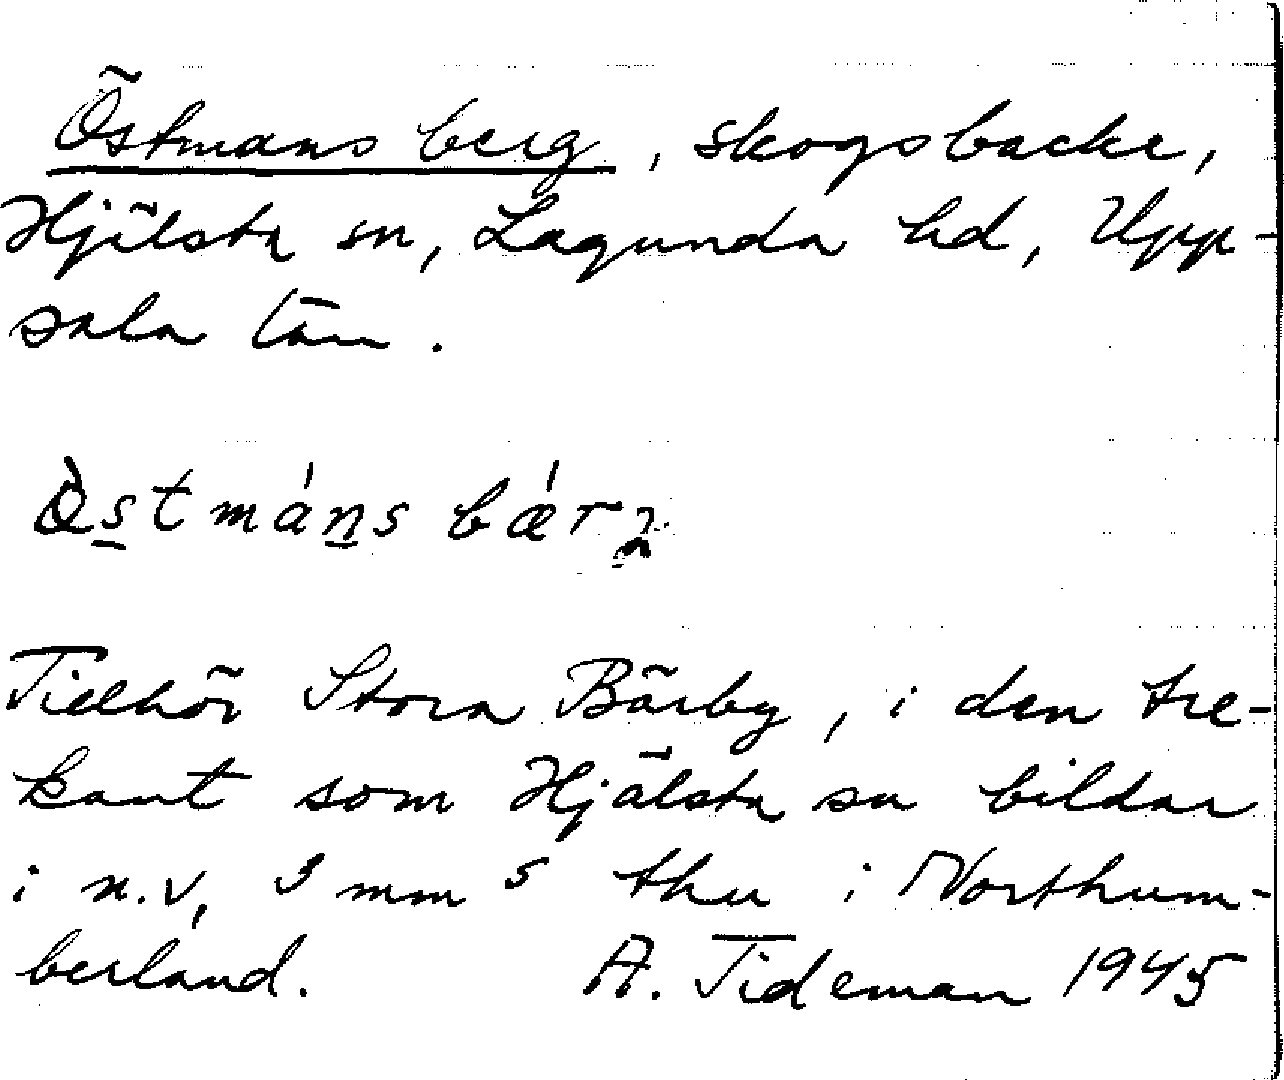 Östmans berg, skogsbacke,
Hjälsta sn, Lagunda hd, Upp-
sala län.
Tillhör Stora Bärby, i den tre-
kant som Hjälsta sn bildar
i n.v, 3 mm s thu i Northum-
berland. A. Tideman 1945